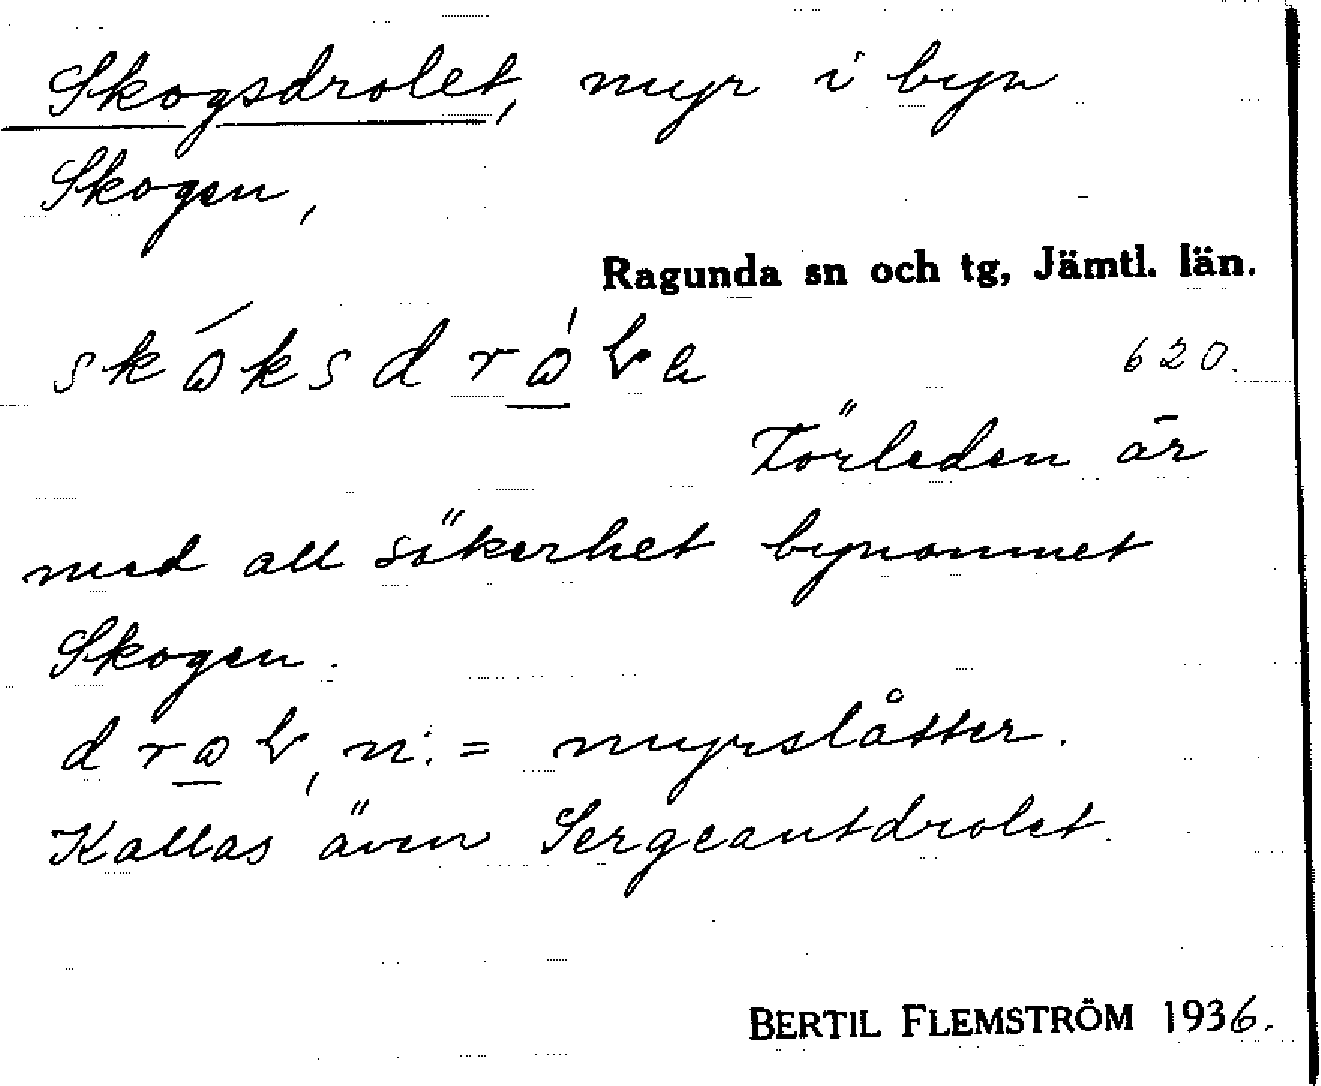 Skogsdrolet, myr i byn
Skogen,
Ragunda sn och tg, Jämtl. län.
620.
Förleden är
med all säkerhet bynamnet
Skogen.
n. = myrslåtter.
Kallas även Sergeantdrolet.
BERTIL FLEMSTRÖM 1936.